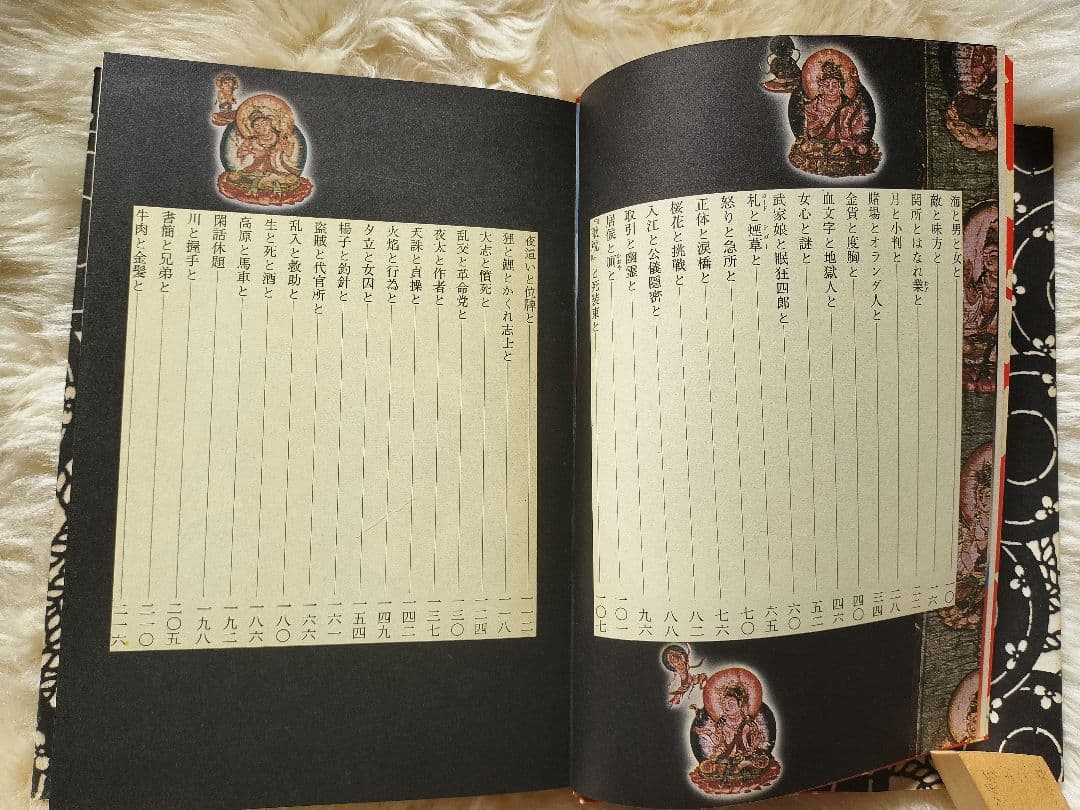 海と男と女と 一〇
敵と味方と 一六
関所とはなれ業と 二二
月と小判と 二八
賭場とオランダ人と 三四
金貨と度胸と 四〇
血文字と地獄人と 四六
女心と謎と 五二
武家娘と眠狂四郎と 六〇
札と煙草と 六五
怒りと急所と 七〇
正体と涙橋と 七六
桜花と挑戦と 八二
入江と公儀隠密と 八八
取引と幽霊と 九六
居候と と 一〇一
と死装束と 一〇七
夜這いと位牌と 一一二
と鯉とかくれ志士と 一一八
大志と憤死と 一二四
乱交と革命党と 一三〇
夜太と作者と 一三七
天誅と貞操と 一四二
火焰と行為と 一四九
夕立と女囚と 一五四
楊子と釣針と 一六一
盗賊と代官所と 一六六
乱入と救助と 一八〇
生と死と酒と 一八六
高原と馬車と 一九二
閑話休題 一九八
川と握手と 二〇五
書簡と兄弟と 二一〇
牛肉と金髪と 二一六